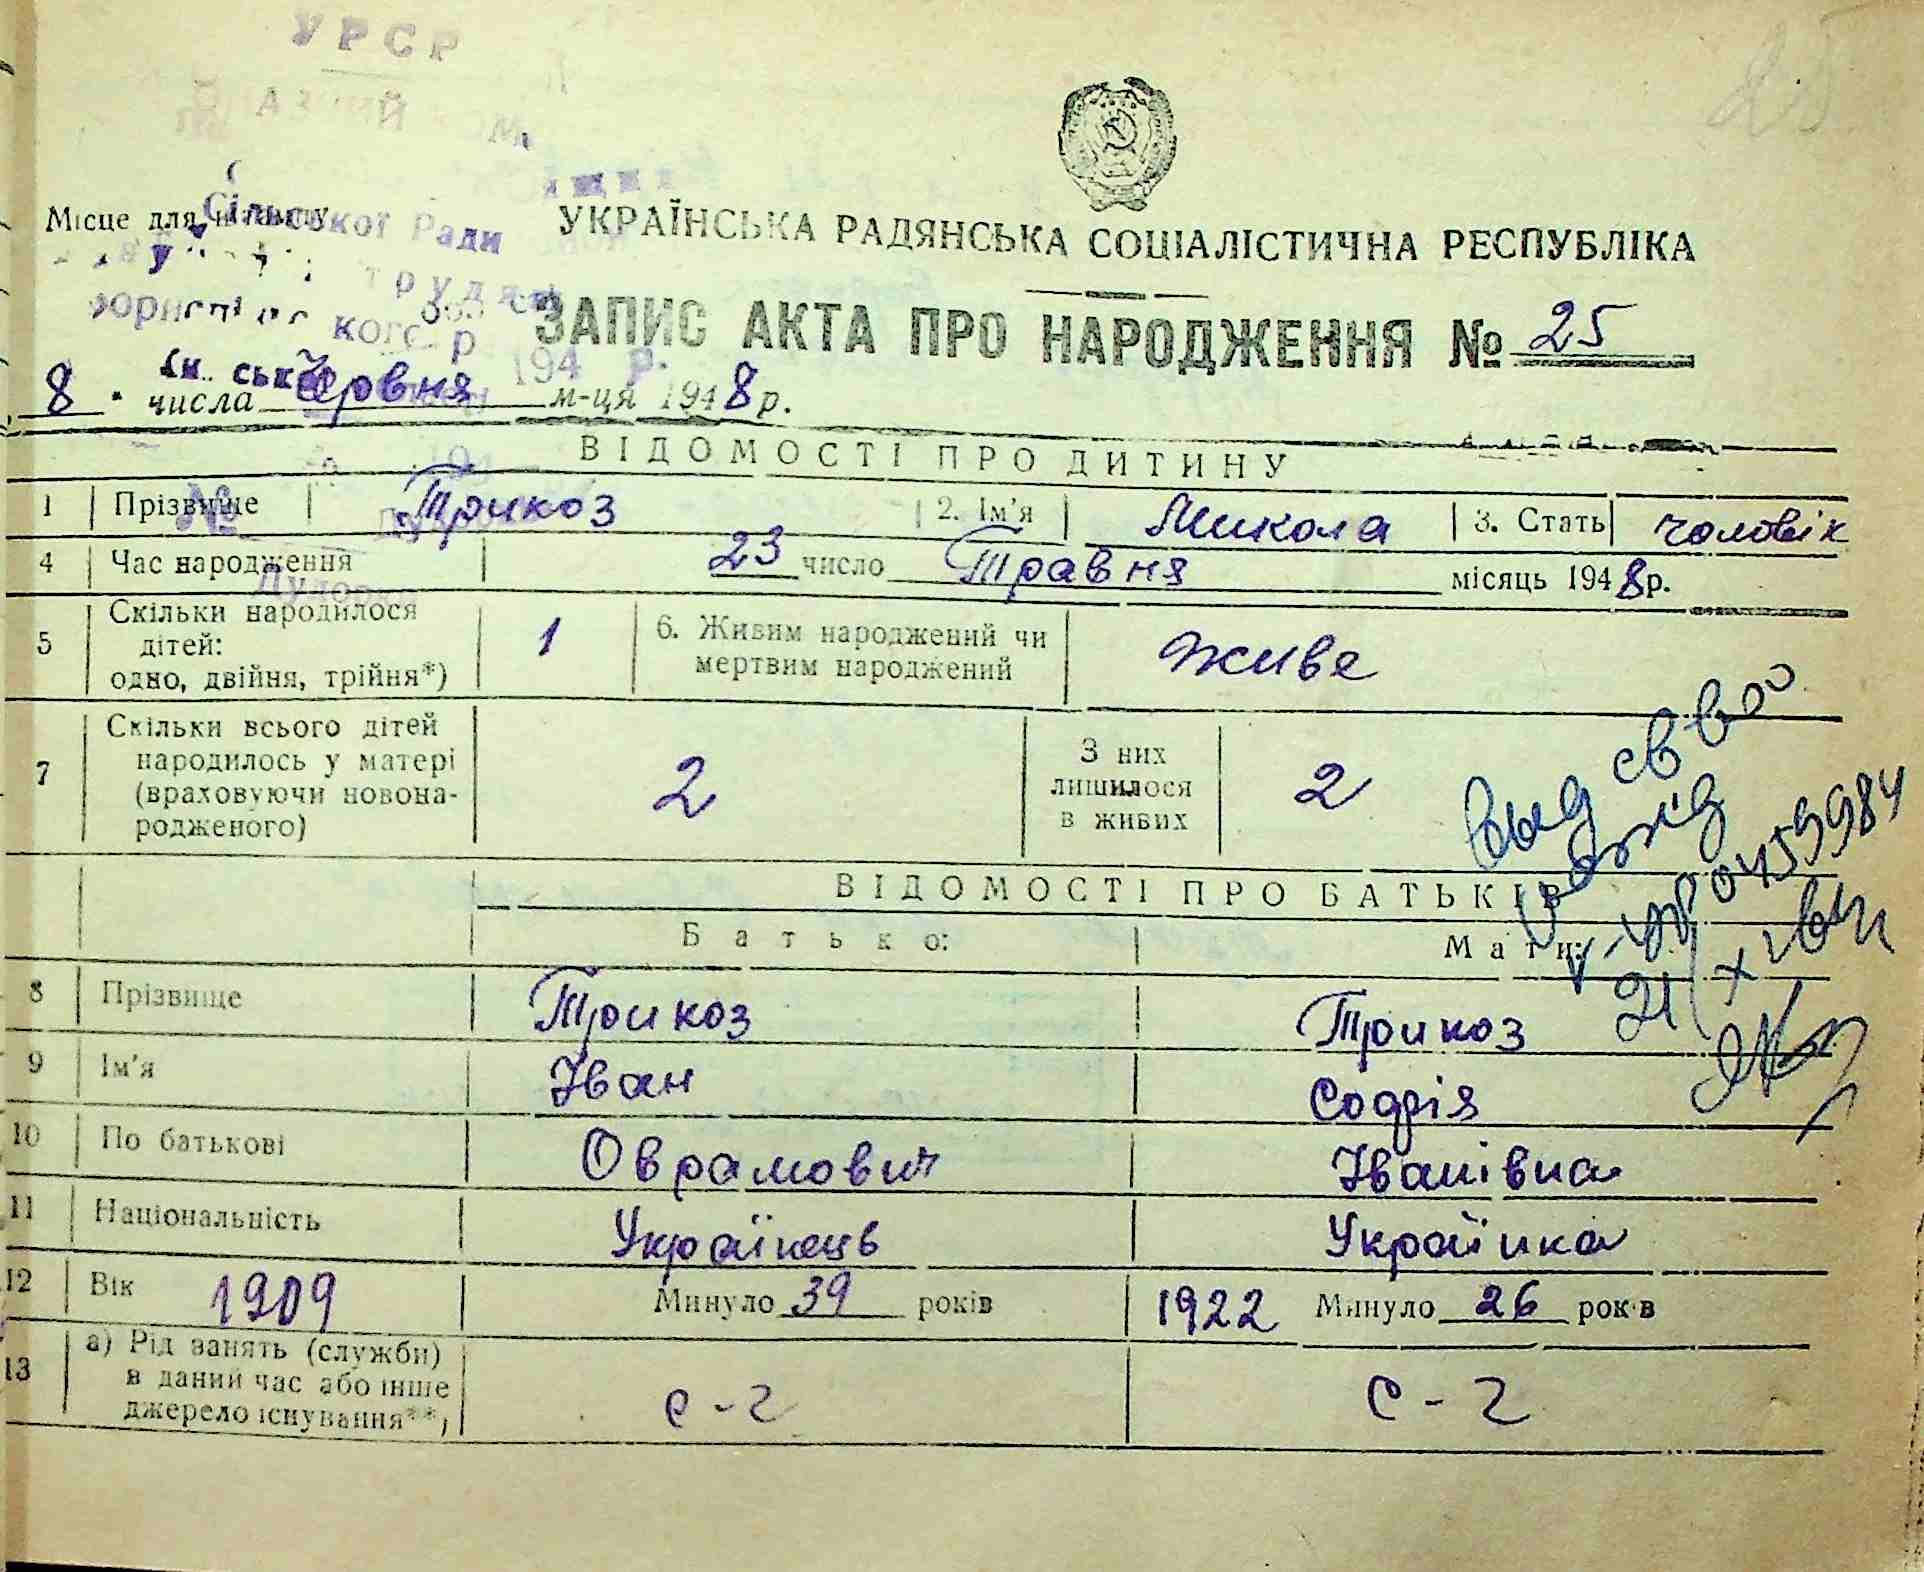 УРСР
Сільської Ради
Місце для
УКРАЇНСЬКА РАДЯНСЬКА СОЦІАЛІСТИЧНА РЕСПУБЛІКА
ЗАПИС АКТА ПРО НАРОДЖЕННЯ № 25
8 числа Червня м-ця 1948 р.
ВІДОМОСТІ ПРО ДИТИНУ
1 Прізвище Трикоз 2. Ім'я Микола 3. Стать чоловік
4 Час народження 23 число Травня місяць 1948 р.
5 Скільки народилося дітей: одно, двійня, трійня*) 1 6. Живим народжений чи мертвим народжений живе
7 Скільки всього дітей народилось у матері (враховуючи новонародженого) 2 З них лишилося в живих 2
ВІДОМОСТІ ПРО БАТЬКІВ
Батько: Мати:
8 Прізвище Трикоз Трикоз
9 Ім'я Іван Софія
10 По батькові Оврамович Іванівна
11 Національність Українець Українка
12 Вік 1909 Минуло 39 років 1922 Минуло 26 років
13 а) Рід занять (служби) в даний час або інше джерело існування**) с-г с-г
25